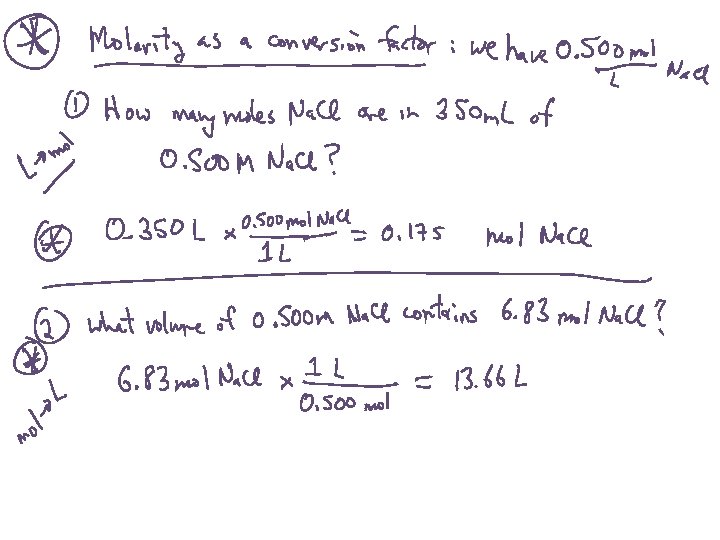 * Molarity as a conversion factor : we have 0.500 mol/L NaCl
① How many moles NaCl are in 350mL of
L→mol
0.500 M NaCl?
* 0.350 L × 0.500 mol NaCl / 1 L = 0.175 mol NaCl
② What volume of 0.500m NaCl contains 6.83 mol NaCl?
* 6.83 mol NaCl × 1 L / 0.500 mol = 13.66 L
mol→L